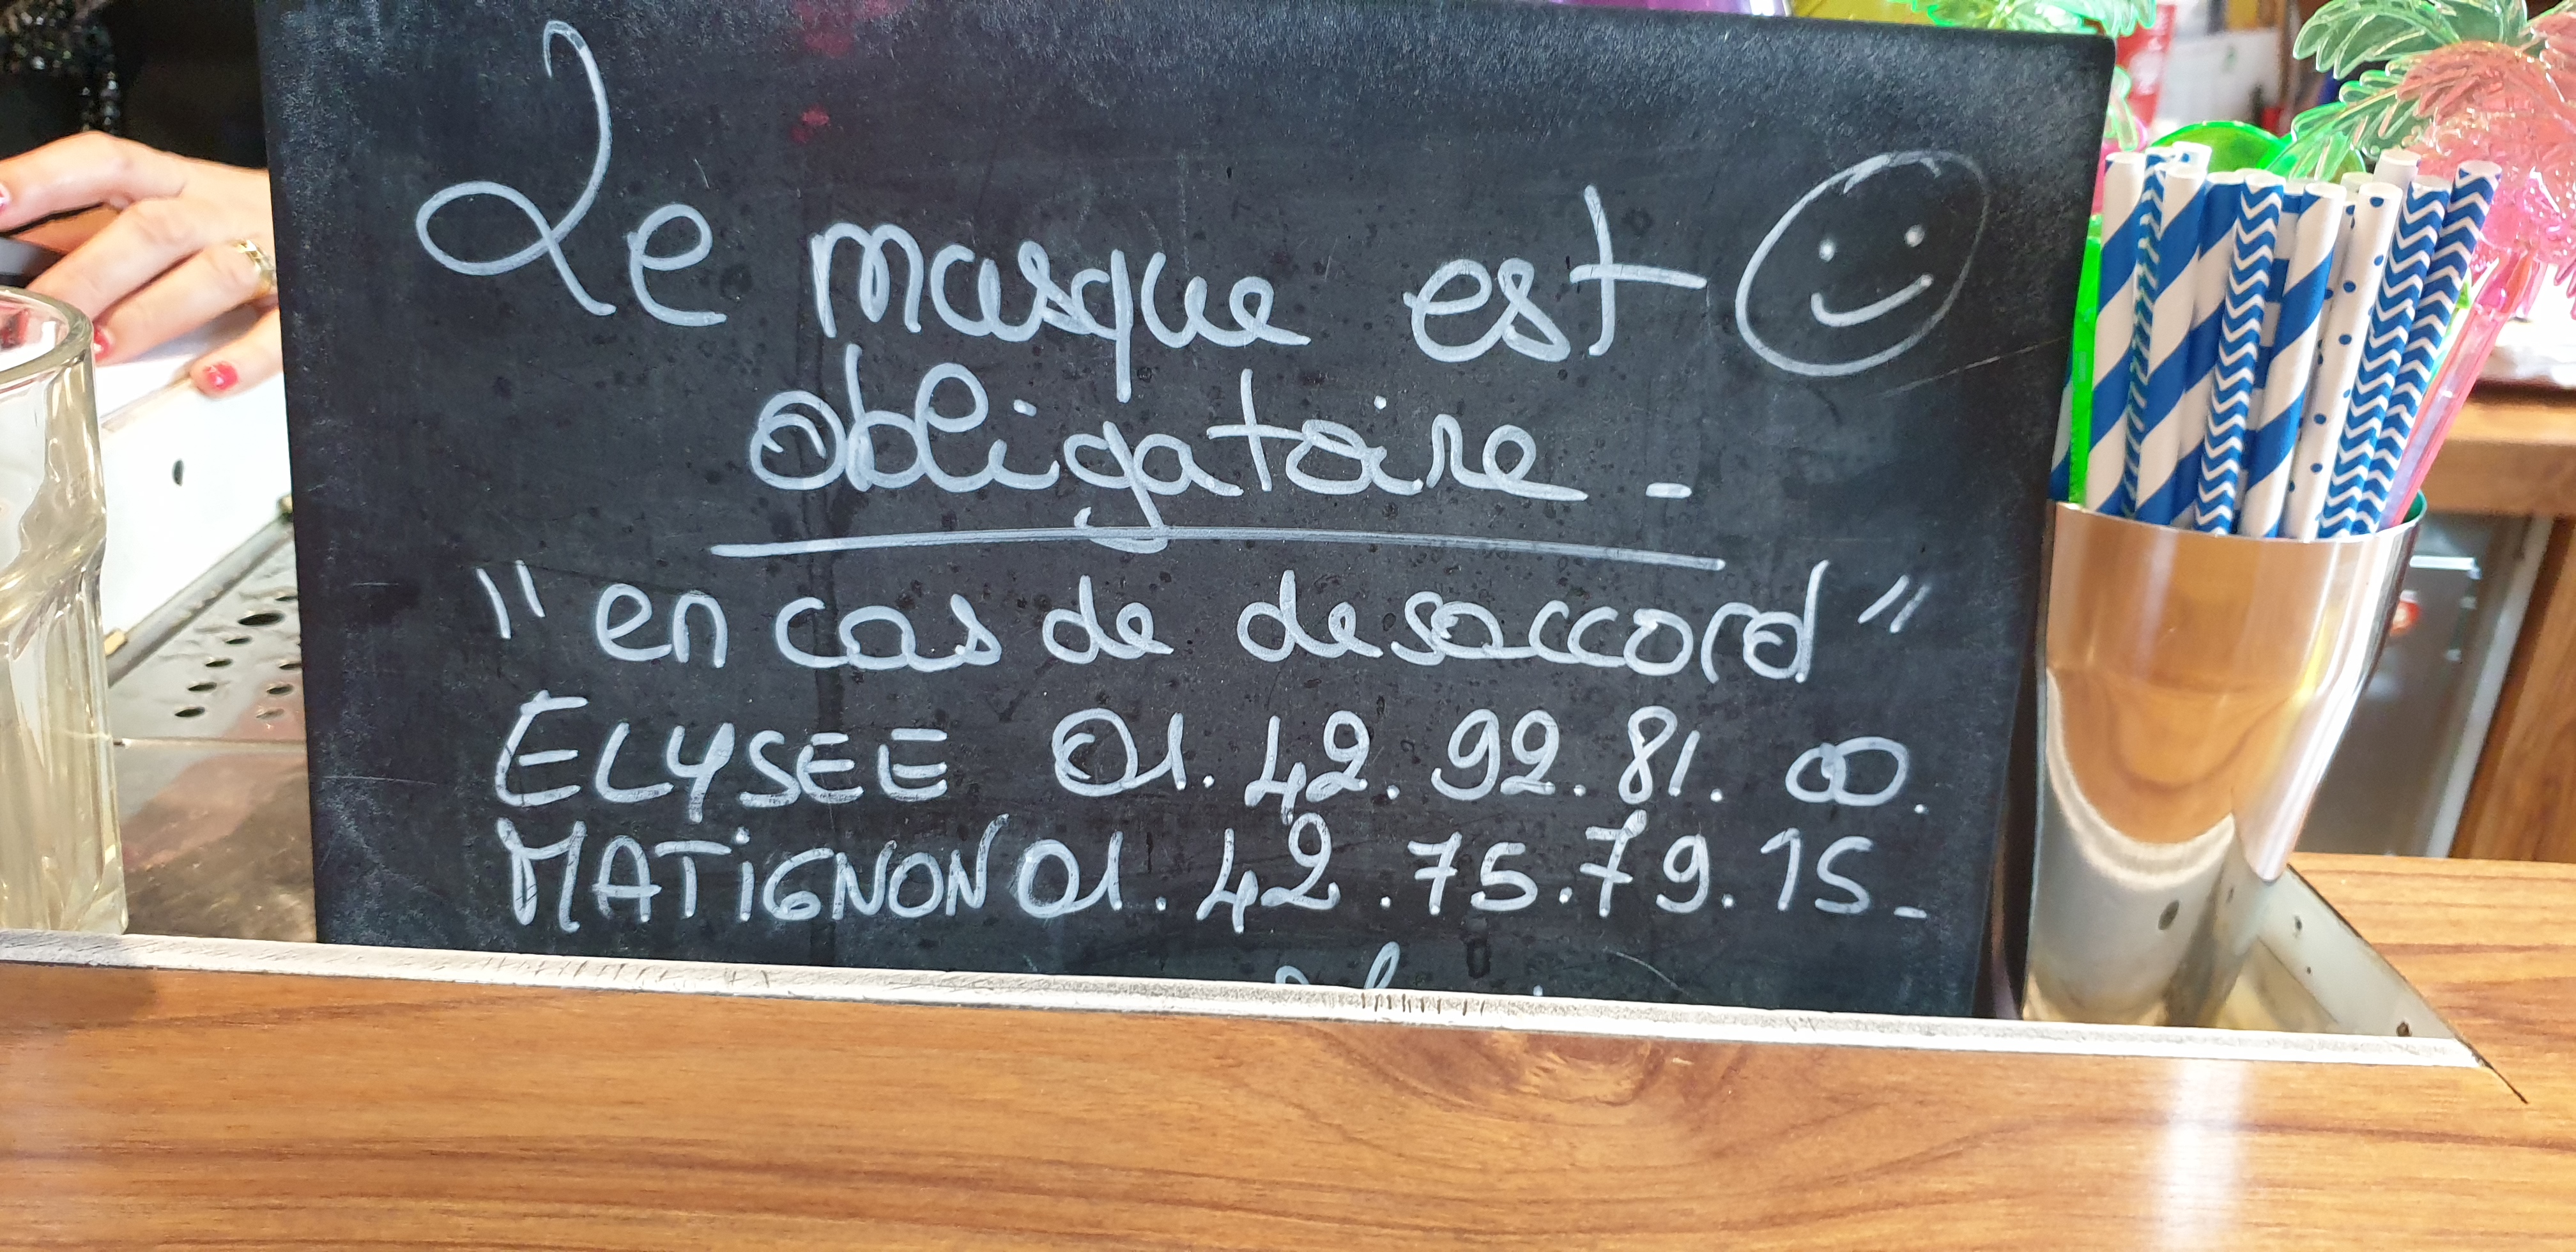 Le masque est
obligatoire -
"en cas de desaccord"
ELYSEE 01.42.92.81.00.
MATiGNON 01.42.75.79.15-